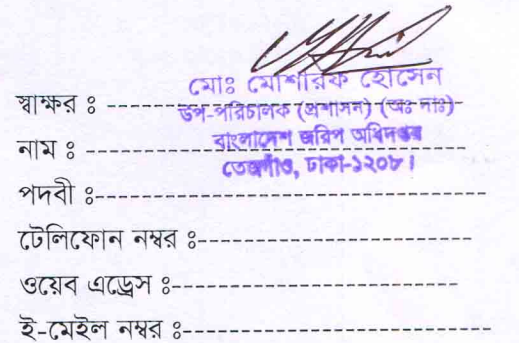 মোঃ মোশারক হোসেন
স্বাক্ষর ঃ --------------------
উপ-পরিচালক (প্রশাসন) (অঃ দাঃ)
নাম ঃ --------------------
বাংলাদেশ জরিপ অধিদপ্তর
তেজগাঁও, ঢাকা-১২০৮।
পদবী ঃ--------------------
টেলিফোন নম্বর ঃ--------------------
ওয়েব এড্রেস ঃ--------------------
ই-মেইল নম্বর ঃ--------------------